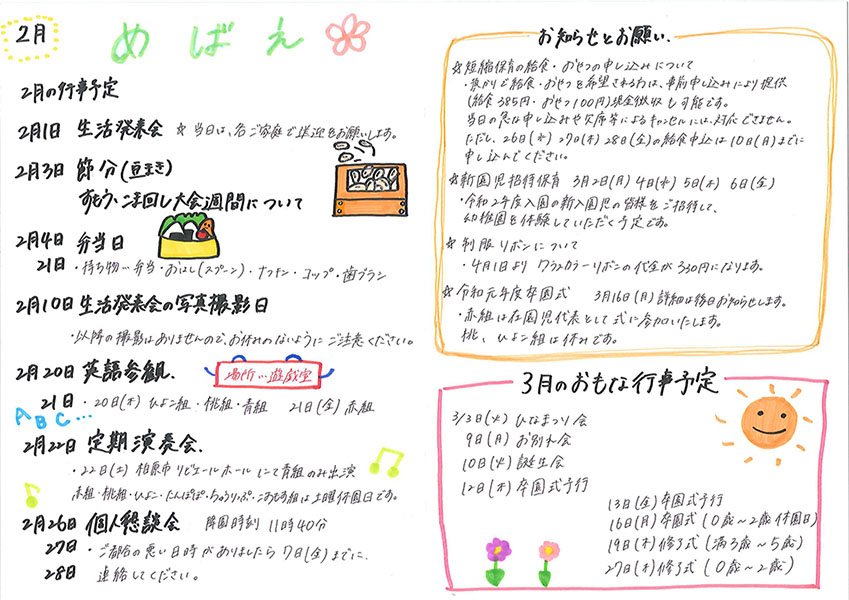 2月 めばえ
2月の行事予定
2月1日 生活発表会 ☆ 当日は、各ご家庭で送迎をお願いします。
2月3日 節分(豆まき)
すもう、こま回し大会週間について
2月4日 弁当日
21日 ・持ち物…弁当・おはし(スプーン)・ナフキン・コップ・歯ブラシ
2月10日 生活発表会の写真撮影日
・以降の撮影はありませんので、お休みのないようにご注意ください。
2月20日 英語参観、
場所…遊戯室
21日 ・20日(木) ひよこ組・桃組・青組 21日(金) 赤組
ABC…
2月22日 定期演奏会、
・22日(土) 柏原市リビエールホールにて青組のみ出演
赤組・桃組・ひよこ・たんぽぽ・ちゅうりっぷ・こすもす組は土曜休園日です。
2月26日 個人懇談会 降園時刻 11時40分
27日 ・ご都合の悪い日時がありましたら 7日(金)までに、
28日 連絡してください。
お知らせとお願い、
☆短縮保育の給食・おやつの申し込みについて
・預かりで給食・おやつを希望される方は、事前申し込みにより提供
(給食385円・おやつ100円)現金徴収も可能です。
当日の急な申し込みや欠席等によるキャンセルには、対応できません。
ただし、26日(水) 27日(木) 28日(金)の給食申込は10日(月)までに
申し込んでください。
☆新園児招待保育 3月2日(月) 4日(水) 5日(木) 6日(金)
・令和2年度入園の新入園児の皆様をご招待して、
幼稚園を体験していただく予定です。
☆制服リボンについて
・4月1日より クラスカラーリボンの代金が330円になります。
☆令和元年度卒園式 3月16日(月) 詳細は後日お知らせします。
・赤組は在園児代表として式に参加いたします。
桃、ひよこ組は休みです。
3月のおもな行事予定
3/3日(火) ひなまつり会
9日(月) お別れ会
10日(火) 誕生会
12日(木) 卒園式予行
13日(金) 卒園式予行
16日(月) 卒園式 (0歳〜2歳休園日)
19日(木) 修了式 (満3歳〜5歳)
27日(木) 修了式 (0歳〜2歳)